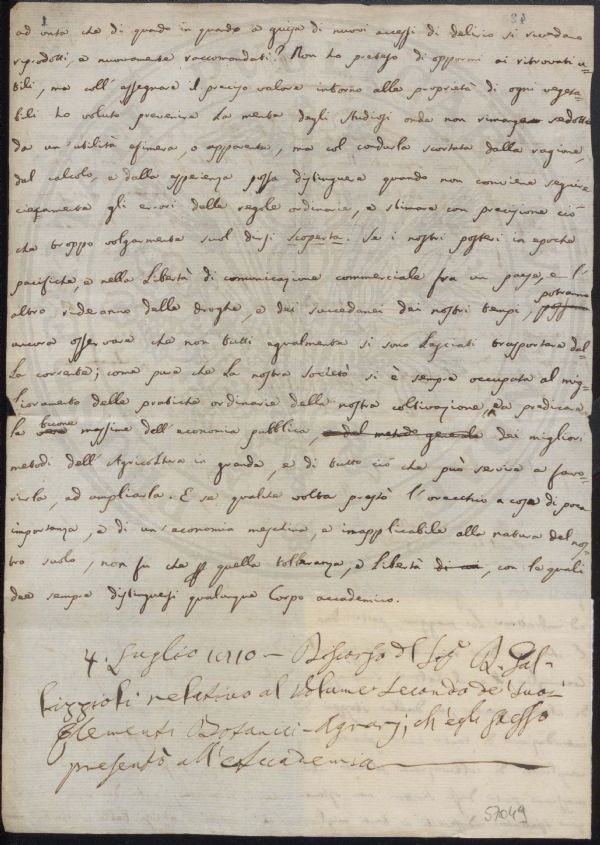 1 34
ad onta che di quando in quando a guisa di nuovi accessi di delirio si vedano
riprodotti, e nuovamente raccomandati? Non ho preteso di oppormi ai ritrovati u-
tili, ma coll' assegnare il preciso valore intorno alle proprietà di ogni vegeta-
bile ho voluto prevenire la mente degli Studiosi onde non rimanga sedotta
da un' utilità efimera, o apparente, ma col condurla scortata dalla ragione,
dal calcolo, e dalla esperienza possa distinguere quando non conviene seguire
ciecamente gli errori delle regole ordinarie, e stimare con precisione ciò
che troppo volgarmente suol dirsi scoperta. Se i nostri posteri in epoche
pacifiche, e nella Libertà di comunicazione commerciale fra un paese, e l'
altro rideranno delle droghe, e dei succedanei dei nostri tempi, potranno
ancora osservare che non tutti egualmente si sono lasciati trasportare dal-
la corrente; come pure che la nostra Società si è sempre occupata al mig-
lioramento delle pratiche ordinarie della nostra coltivazione, a predicare
le buone massime dell' economia pubblica, dei migliori
metodi dell' Agricoltura in grande, e di tutto ciò che può servire a favo-
rirla, ad ampliarla. E se qualche volta prestò l' orecchio a cose di poca
importanza, e di un' economia meschina, e inapplicabile alla natura del nos-
tro suolo, non fu che quella tolleranza, e libertà, con le quali
dee sempre distinguersi qualunque Corpo accademico.
4. Luglio 1810 - Discorso del Sigr. D. Gal-
lizzioli relativo al Volume Secondo de' suoi
Elementi Botanici-Agrarj, ch' egli stesso
presentò all' Accademia
57049